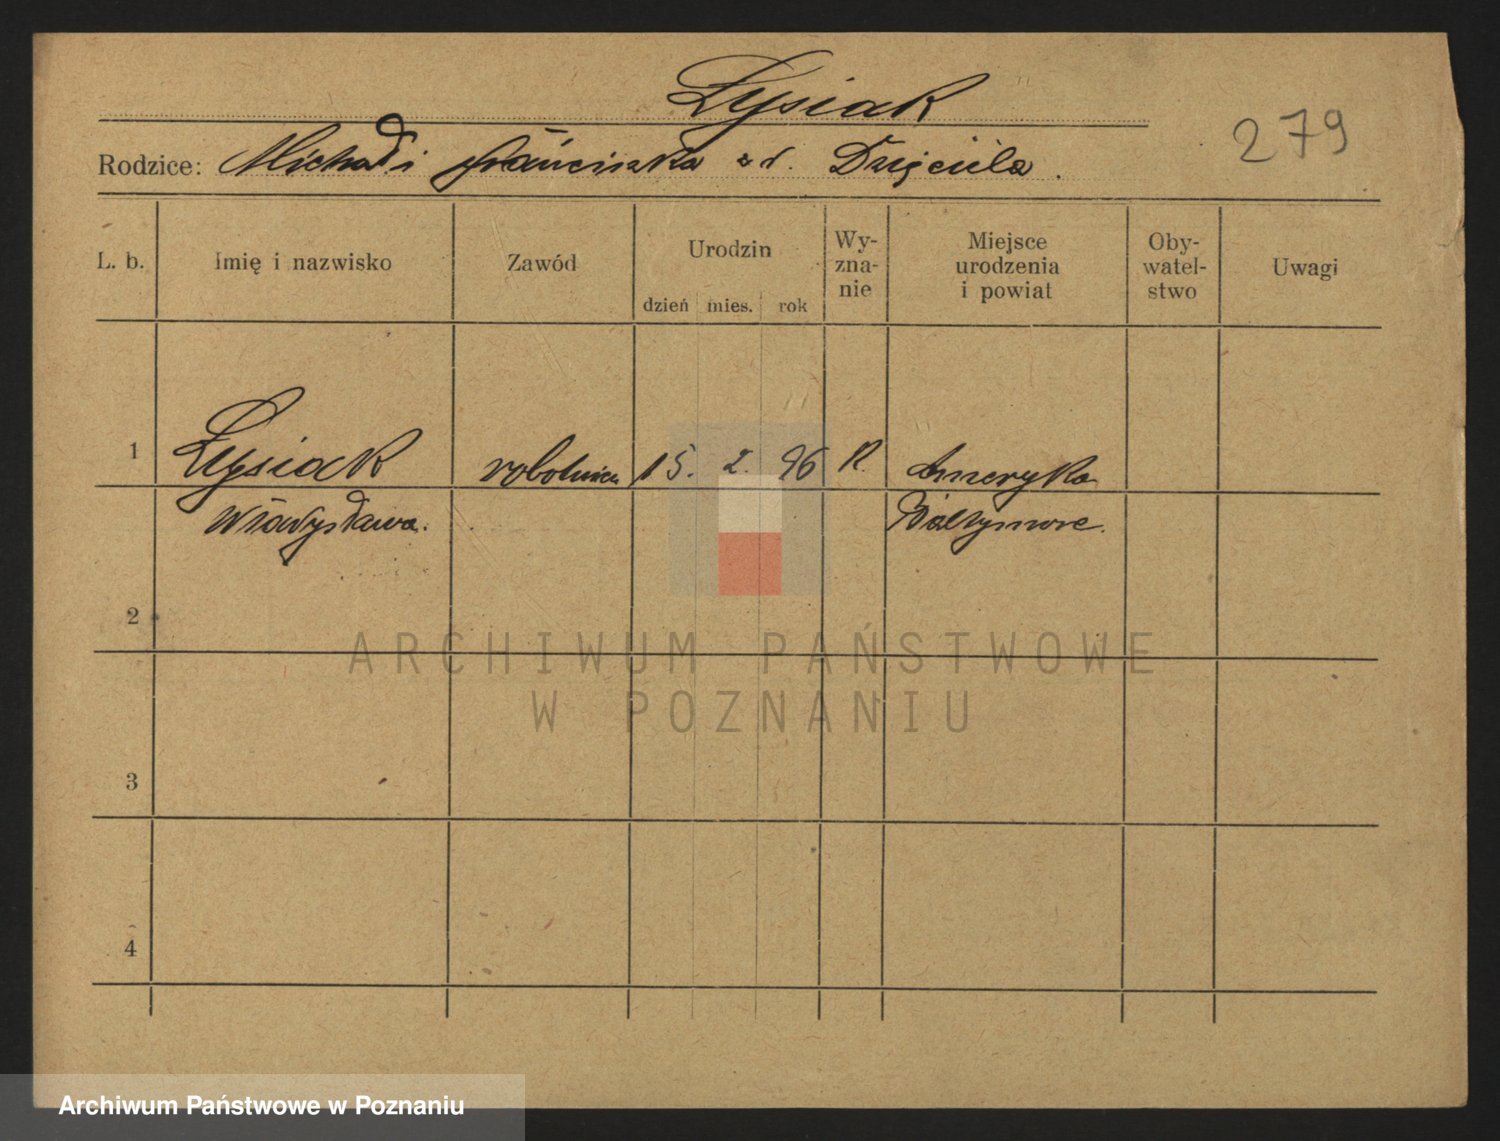 Łysiak
279
Rodzice: Michał i Franciszka z d. Dzięciela.
L. b. Imię i nazwisko Zawód Urodzin dzień mies. rok Wy-zna-nie Miejsce urodzenia i powiat Oby-watel-stwo Uwagi
1 Łysiak robotnica 15. 2. 96 R. Ameryka
Władysława. Baltymore.
2
ARCHIWUM PAŃSTWOWE
W POZNANIU
3
4
Archiwum Państwowe w Poznaniu